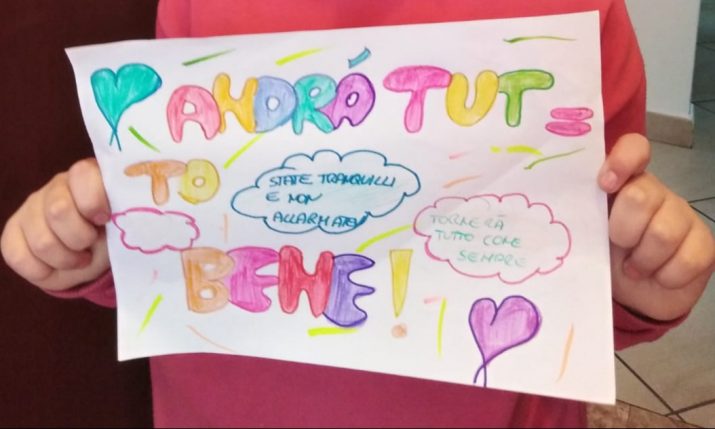 ANDRÁ TUT=
TO
STATE TRANQUILLI
E NON
ALLARMATEVI
TORNERÁ
TUTTO COME
SEMPRE
BENE!